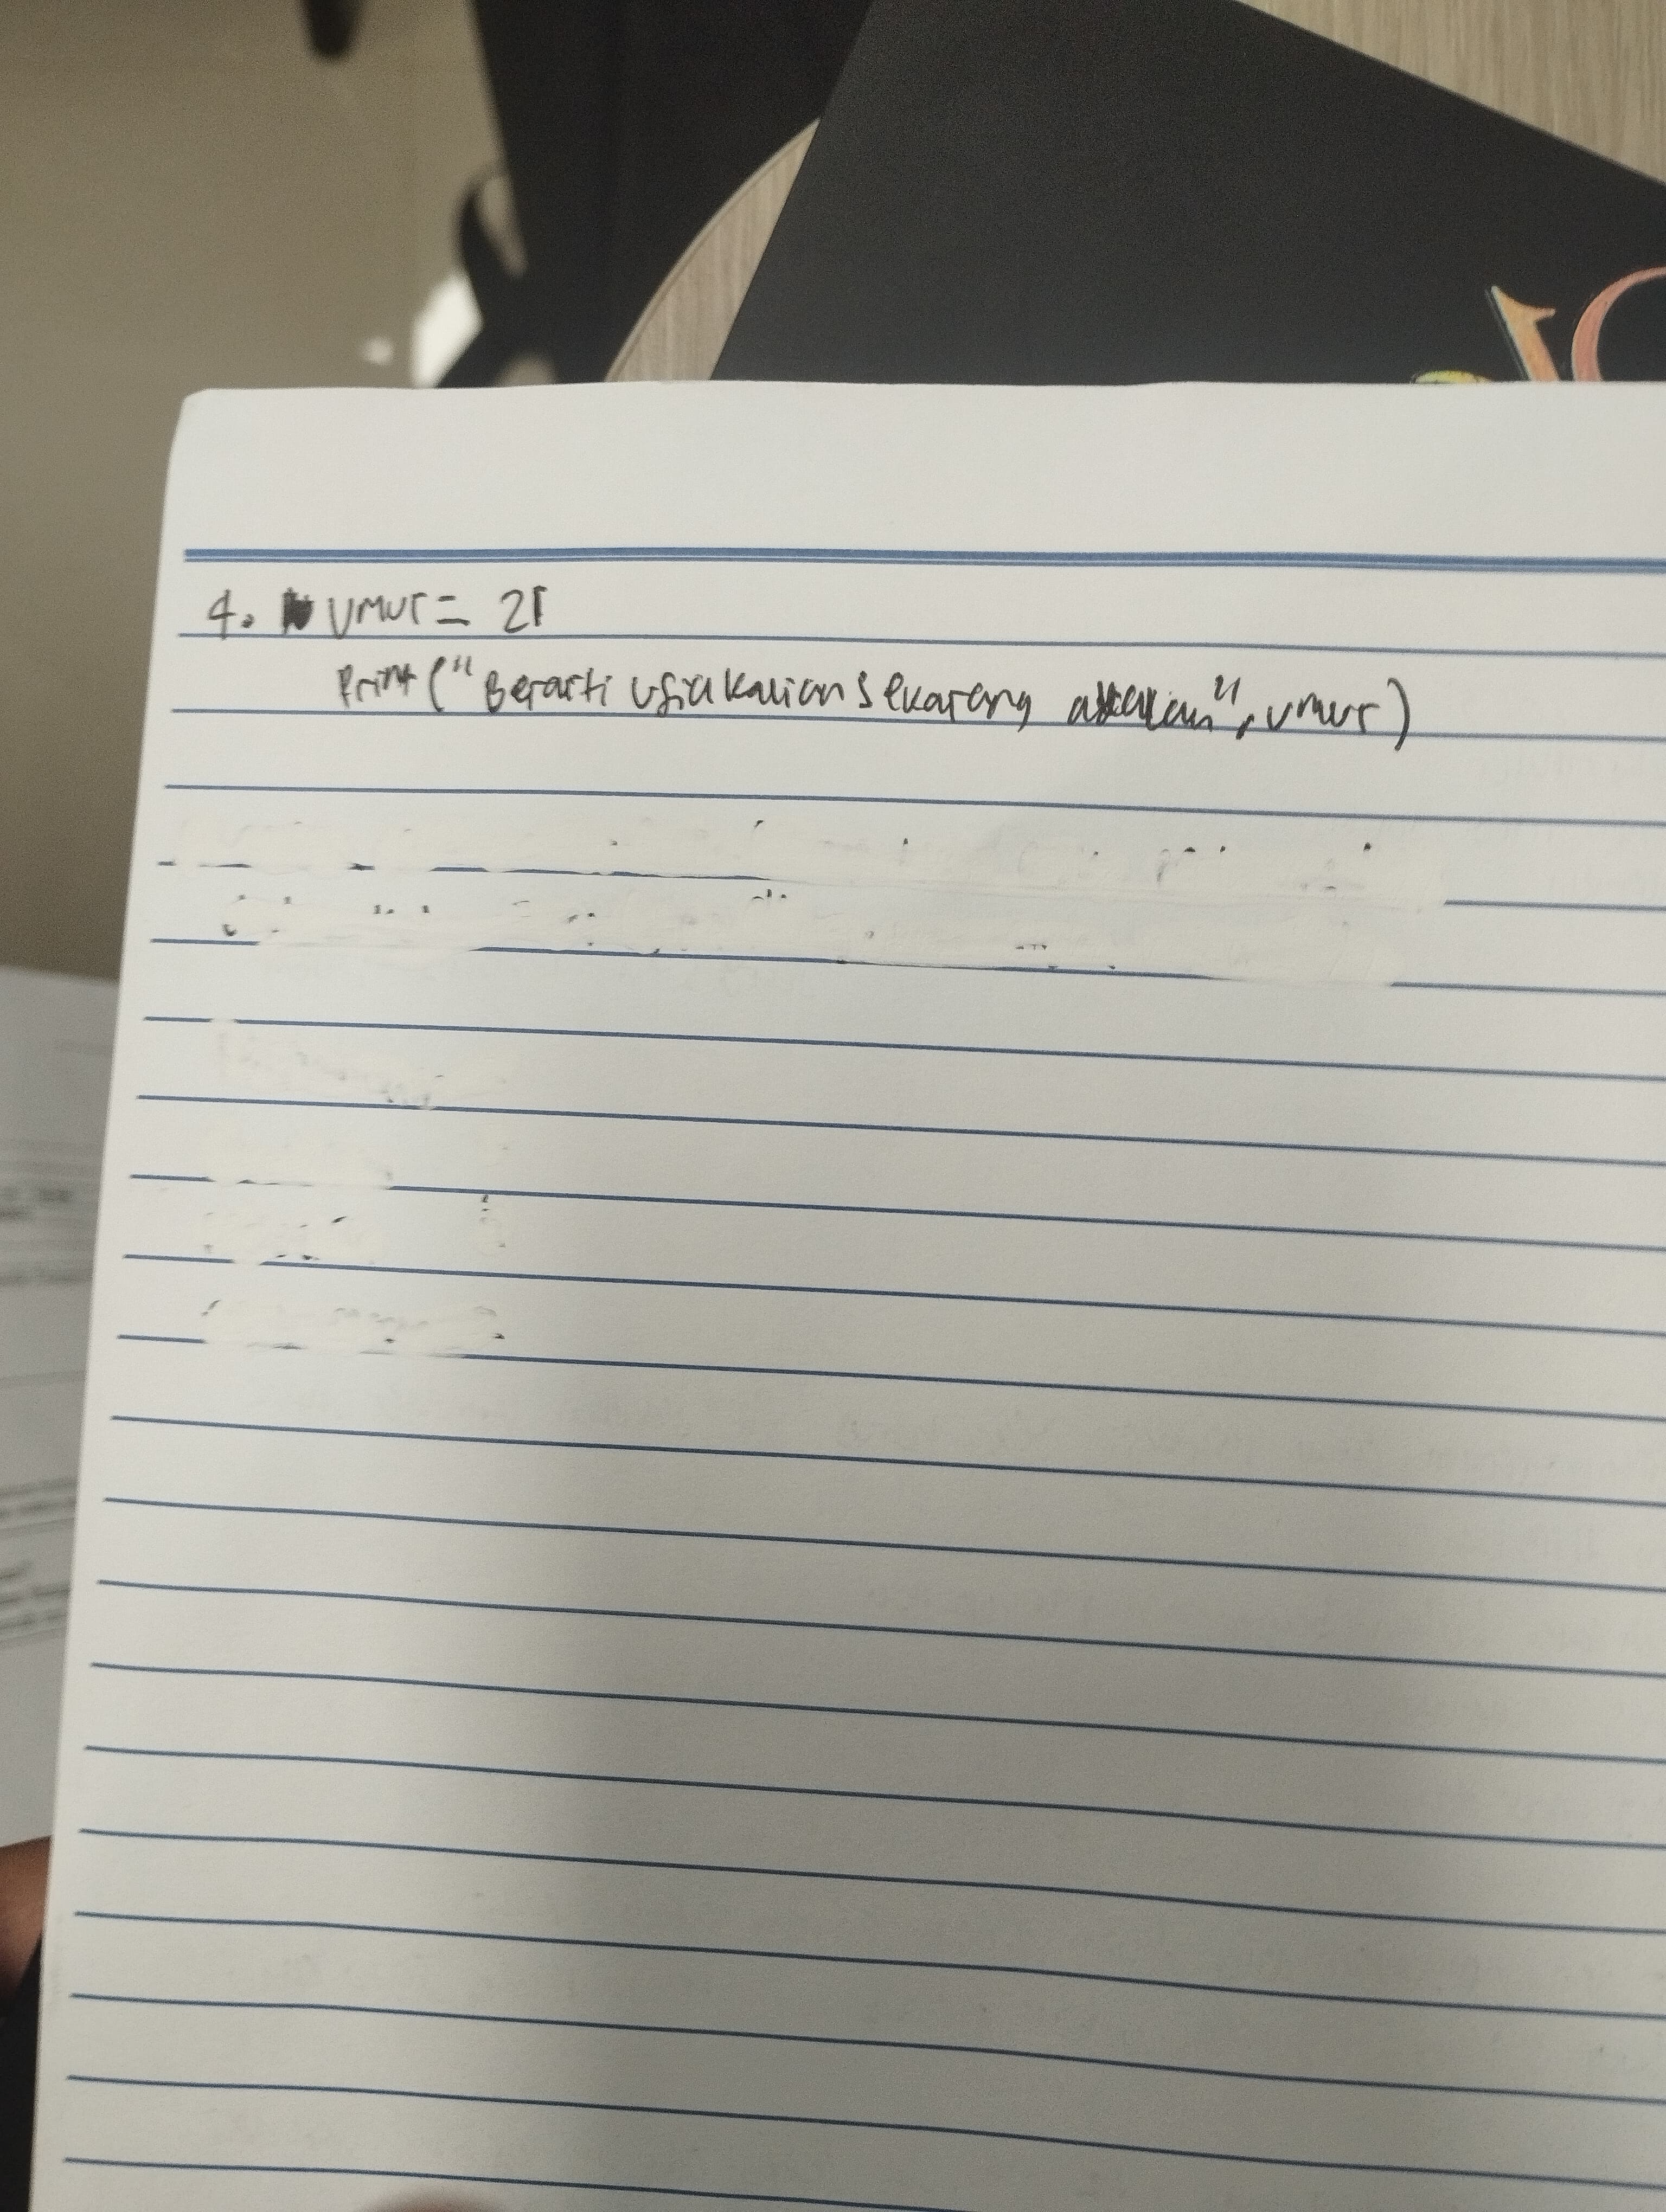 4. umur = 21
Print ("Berarti usia kalian sekarang adalah", umur)